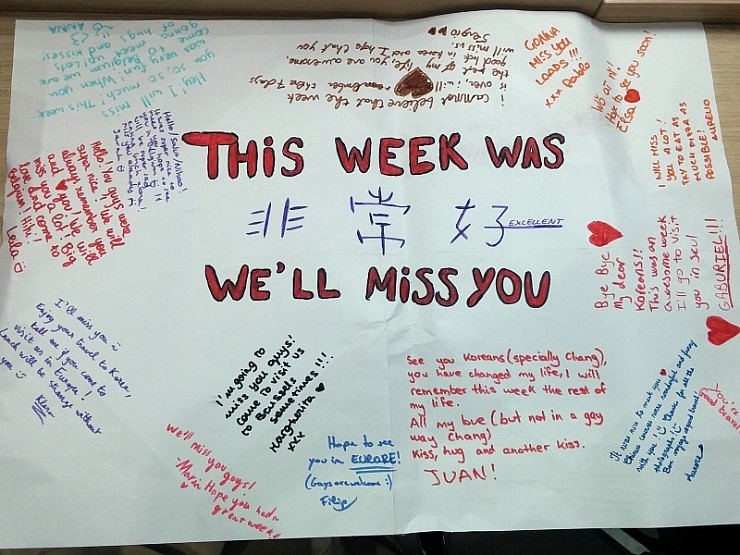 THIS WEEK WAS
非常好 EXCELLENT
WE'LL MISS YOU
Hey! I will miss
you so, so much! This week
was very fun! When we are
in Belgium up lets
meet up and kisses!
ANNA
i cannot believe that the week
is over. i will remember these 7 days
the rest of my life. you are awesome
good luck in korea and I hope that you
will miss us.
Sergio
GONNA
MISS YOU
LOADS!!!
xxx Pablo
to see you soon!
Elsa
I WILL MISS
YOU A LOT!
TRY TO EAT AS
MUCH PIZZA AS
POSSIBLE!
AURELIO
Hello. You guys were
super nice. We will
always remember you
and you! We will
miss you a lot! Big
love and come to
Belgium! Hihi!
Lola
Bye Bye
My dear
Koreans!!
This was an
awesome week
I'll go to visit
you in Seul
GABURIEL!!!
I'll miss you
Enjoy your travel to Korea,
tell me if you come to
visit us in Europe!
Lunch will be strange without
you
I'm going to
miss you guys!
Come to visit us
to Brussels
sometimes!!!
Margherita
xxx
See you Koreans (specially Chang),
you have changed my life, I will
remember this week the rest of
my life.
All my love (but not in a gay
way chang)
Kiss, hug and another kiss.
JUAN!
We'll miss you guys!
-Maria Hope you had a
great week!
Hope to see
you in EUROPE!
(Guys are welcome :)
Filip
It was nice to meet you
Chinese were wonderful and funny
with you! Thanks for all the
photographs!